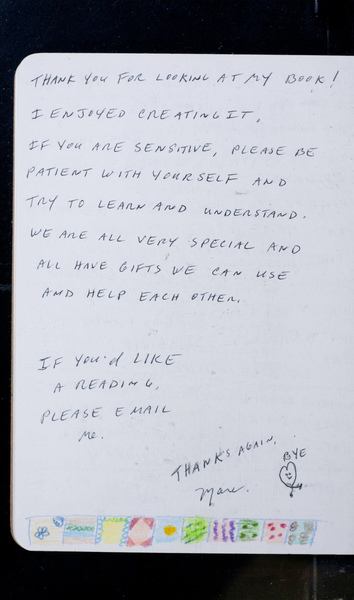 THANK YOU FOR LOOKING AT MY BOOK!
I ENJOYED CREATING IT,
IF YOU ARE SENSITIVE, PLEASE BE
PATIENT WITH YOURSELF AND
TRY TO LEARN AND UNDERSTAND.
WE ARE ALL VERY SPECIAL AND
ALL HAVE GIFTS WE CAN USE
AND HELP EACH OTHER.
IF YOU'd LIKE
A READING,
PLEASE EMAIL
Me.
THANKS AGAIN,
BYE